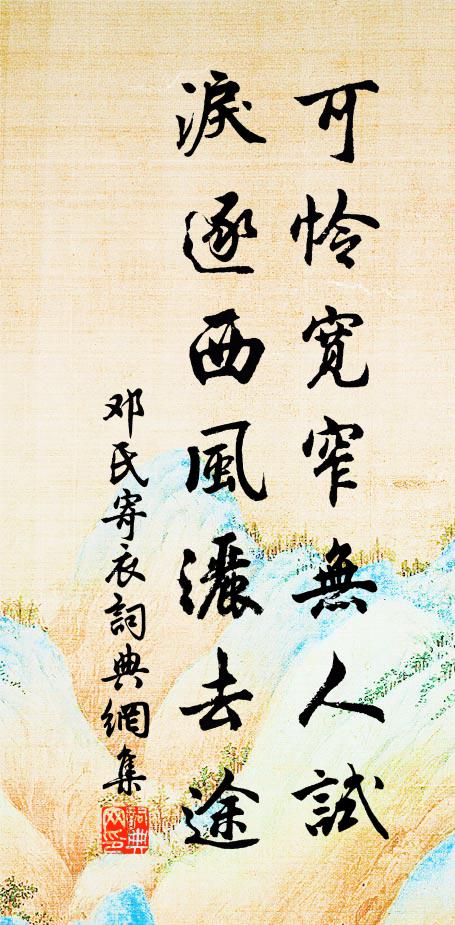 可怜寬窄無人試
淚逐西風灑去途
邓氏寄衣詞典網集
詞典網印